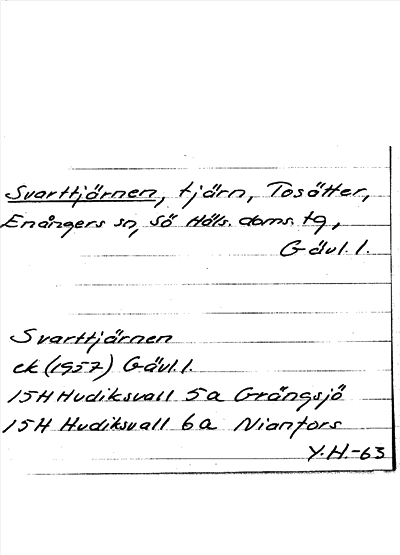 Svarttjärnen, tjärn, Tosätter,
Enångers sn, Sö Häls. doms. tg,
Gävl. l.
Svarttjärnen
ek (1957) Gävl. l.
15H Hudiksvall 5a Grängsjö
15H Hudiksvall 6a Nianfors
Y.H.-63